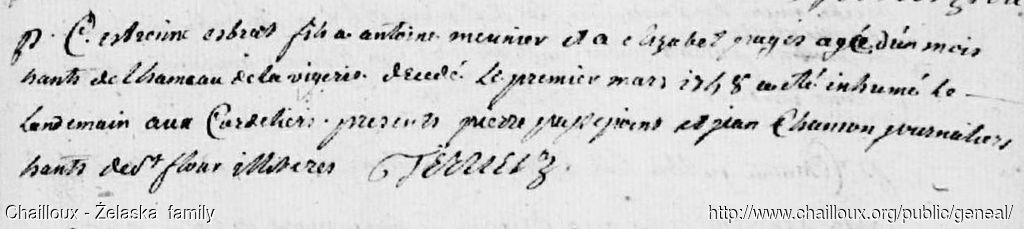 p. C. estienne esbrat fils a antoine meunier et a elizabet pages agé d'un mois
hants de lhameau de la vigerie decedé le premier mars 1748 a eté inhumé le
landemain aux Cordeliers. presents pierre et jean Chanson journaliers
hants de St flour illiteres
Chailloux - Żelaska family
http://www.chailloux.org/public/geneal/